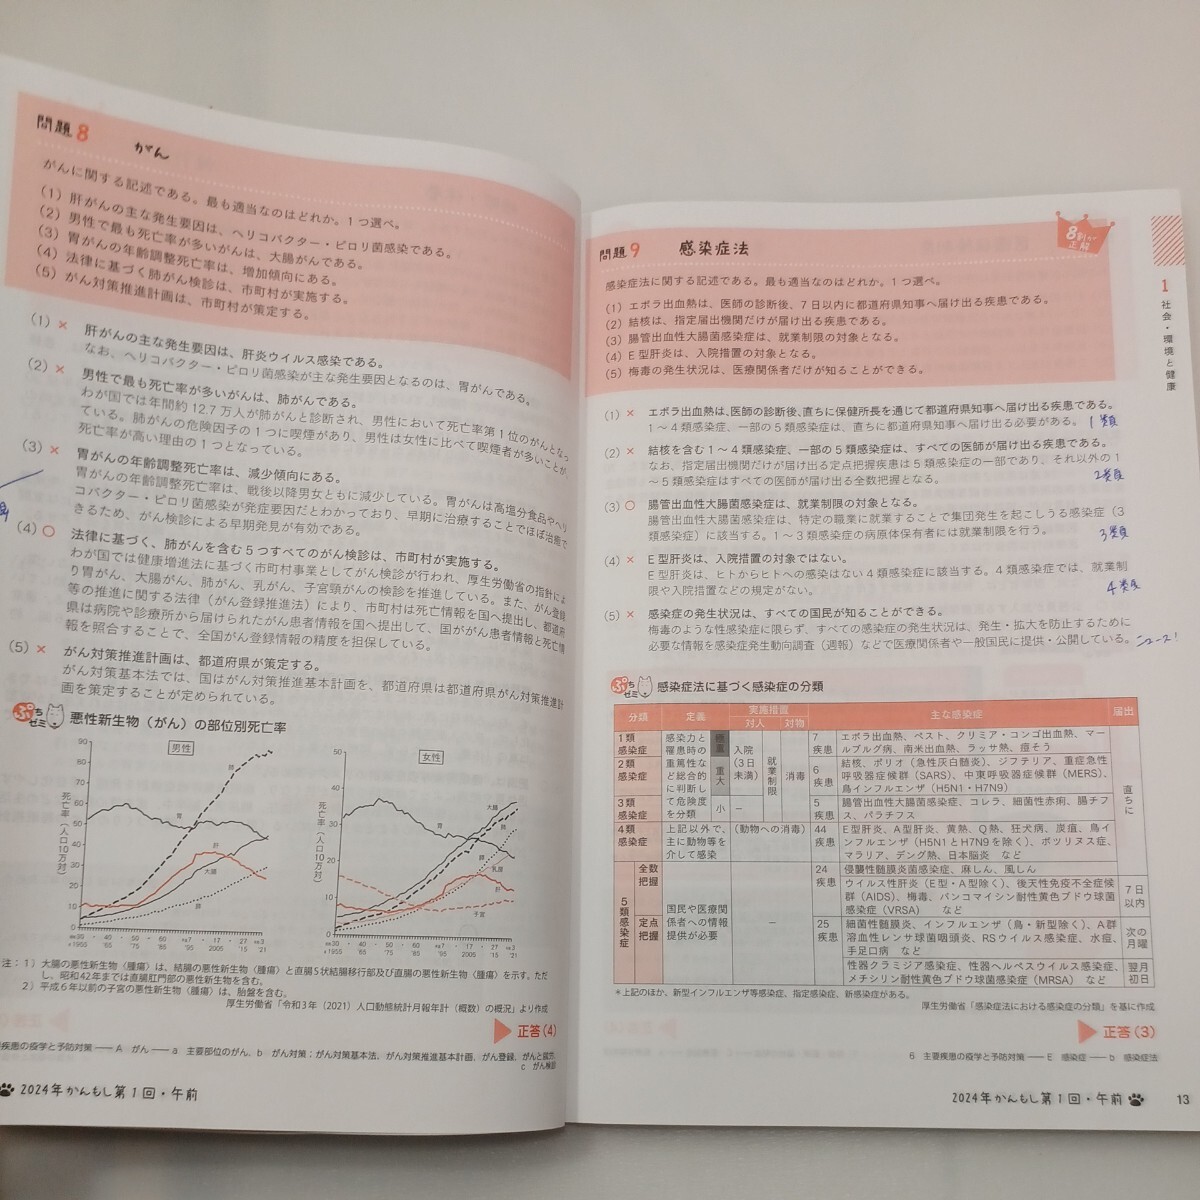 問題8 がん
がんに関する記述である。最も適当なのはどれか。1つ選べ。
(1) 肝がんの主な発生要因は、ヘリコバクター・ピロリ菌感染である。
(2) 男性で最も死亡率が多いがんは、大腸がんである。
(3) 胃がんの年齢調整死亡率は、増加傾向にある。
(4) 法律に基づく肺がん検診は、市町村が実施する。
(5) がん対策推進計画は、市町村が策定する。
(1) × 肝がんの主な発生要因は、肝炎ウイルス感染である。
なお、ヘリコバクター・ピロリ菌感染が主な発生要因となるのは、胃がんである。
(2) × 男性で最も死亡率が多いがんは、肺がんである。
わが国では年間約12.7万人が肺がんと診断され、男性において死亡率第1位のがんとなっ
ている。肺がんの危険因子の1つに喫煙があり、男性は女性に比べて喫煙者が多いことが、
死亡率が高い理由の1つとなっている。
(3) × 胃がんの年齢調整死亡率は、減少傾向にある。
胃がんの年齢調整死亡率は、戦後以降男女ともに減少している。胃がんは高塩分食品やヘリ
コバクター・ピロリ菌感染が発症要因とわかっており、早期に治療することでほぼ治癒で
きるため、がん検診による早期発見が有効である。
(4) ○ 法律に基づく、肺がんを含む5つすべてのがん検診は、市町村が実施する。
わが国では健康増進法に基づく市町村事業としてがん検診が行われ、厚生労働省の指針によ
り胃がん、大腸がん、肺がん、乳がん、子宮頸がんの検診を推進している。また、がん登録
等の推進に関する法律（がん登録推進法）により、市町村は死亡情報を国へ提出し、都道府
県は病院や診療所から届けられたがん患者情報を国へ提出して、国ががん患者情報と死亡情
報を照合することで、全国がん登録情報の精度を担保している。
(5) × がん対策推進計画は、都道府県が策定する。
がん対策基本法では、国はがん対策推進基本計画を、都道府県は都道府県がん対策推進計
画を策定することが定められている。
ぷちゼミ 悪性新生物（がん）の部位別死亡率
男性
女性
死亡率（人口10万対）
90
80
70
60
50
40
30
20
10
0
肺
胃
肝
大腸
膵
昭和30 40 50 60 ・ 平成7 17 27 令和3
1955 '65 '75 '85 '95 2005 '15 '21
死亡率（人口10万対）
50
40
30
20
10
0
大腸
肺
胃
膵
乳房
肝
子宮
昭和30 40 50 60 ・ 平成7 17 27 令和3
1955 '65 '75 '85 '95 2005 '15 '21
注：1）大腸の悪性新生物〈腫瘍〉は、結腸の悪性新生物〈腫瘍〉と直腸S状結腸移行部及び直腸の悪性新生物〈腫瘍〉を示す。ただ
し、昭和42年までは直腸肛門部の悪性新生物を含む。
2）平成6年以前の子宮の悪性新生物〈腫瘍〉は、胎盤を含む。
厚生労働省「令和3年（2021）人口動態統計月報年計（概数）の概況」より作成
正答(4)
疾患の疫学と予防対策 ── A がん ── a 主要部位のがん、b がん対策：がん対策基本法、がん対策推進基本計画、がん登録、がんと就労、
c がん検診
2024年かんもし第1回・午前
問題9 感染症法
8割が正解
感染症法に関する記述である。最も適当なのはどれか。1つ選べ。
(1) エボラ出血熱は、医師の診断後、7日以内に都道府県知事へ届け出る疾患である。
(2) 結核は、指定届出機関だけが届け出る疾患である。
(3) 腸管出血性大腸菌感染症は、就業制限の対象となる。
(4) E型肝炎は、入院措置の対象となる。
(5) 梅毒の発生状況は、医療関係者だけが知ることができる。
(1) × エボラ出血熱は、医師の診断後、直ちに保健所長を通じて都道府県知事へ届け出る疾患である。
1～4類感染症、一部の5類感染症は、直ちに都道府県知事へ届け出る必要がある。 1類
(2) × 結核を含む1～4類感染症、一部の5類感染症は、すべての医師が届け出る疾患である。
なお、指定届出機関だけが届け出る定点把握疾患は5類感染症の一部であり、それ以外の1
～5類感染症はすべての医師が届け出る全数把握となる。 2類
(3) ○ 腸管出血性大腸菌感染症は、就業制限の対象となる。
腸管出血性大腸菌感染症は、特定の職業に就業することで集団発生を起こしうる感染症（3
類感染症）に該当する。1～3類感染症の病原体保有者には就業制限を行う。 3類
(4) × E型肝炎は、入院措置の対象ではない。
E型肝炎は、ヒトからヒトへの感染はない4類感染症に該当する。4類感染症では、就業制
限や入院措置などの規定がない。 4類
(5) × 感染症の発生状況は、すべての国民が知ることができる。
梅毒のような性感染症に限らず、すべての感染症の発生状況は、発生・拡大を防止するために
必要な情報を感染症発生動向調査（週報）などで医療関係者や一般国民に提供・公開している。 ニュース!
ぷちゼミ 感染症法に基づく感染症の分類
分類 定義 実施措置 主な感染症 届出
対人 対物
1類感染症 感染力と罹患時の重篤性など総合的に判断して危険度を分類 極重 入院（3日未満） 就業制限 消毒 7疾患 エボラ出血熱、ペスト、クリミア・コンゴ出血熱、マールブルグ病、南米出血熱、ラッサ熱、痘そう 直ちに
2類感染症 重大 6疾患 結核、ポリオ（急性灰白髄炎）、ジフテリア、重症急性呼吸器症候群（SARS）、中東呼吸器症候群（MERS）、鳥インフルエンザ（H5N1・H7N9）
3類感染症 小 － 5疾患 腸管出血性大腸菌感染症、コレラ、細菌性赤痢、腸チフス、パラチフス
4類感染症 上記以外で、主に動物等を介して感染 （動物への消毒） 44疾患 E型肝炎、A型肝炎、黄熱、Q熱、狂犬病、炭疽、鳥インフルエンザ（H5N1とH7N9を除く）、ボツリヌス症、マラリア、デング熱、日本脳炎 など
5類感染症 全数把握 国民や医療関係者への情報提供が必要 － 24疾患 侵襲性髄膜炎菌感染症、麻しん、風しん
ウイルス性肝炎（E型・A型除く）、後天性免疫不全症候群（AIDS）、梅毒、バンコマイシン耐性黄色ブドウ球菌感染症（VRSA） など 7日以内
定点把握 25疾患 細菌性髄膜炎、インフルエンザ（鳥・新型除く）、A群溶血性レンサ球菌咽頭炎、RSウイルス感染症、水痘、手足口病 など 次の月曜
性器クラミジア感染症、性器ヘルペスウイルス感染症、メチシリン耐性黄色ブドウ球菌感染症（MRSA） など 翌月初日
＊上記のほか、新型インフルエンザ等感染症、指定感染症、新感染症がある。
厚生労働省「感染症法における感染症の分類」を基に作成
正答(3)
6 主要疾患の疫学と予防対策 ── E 感染症 ── b 感染症法
2024年かんもし第1回・午前 13
1 社会・環境と健康